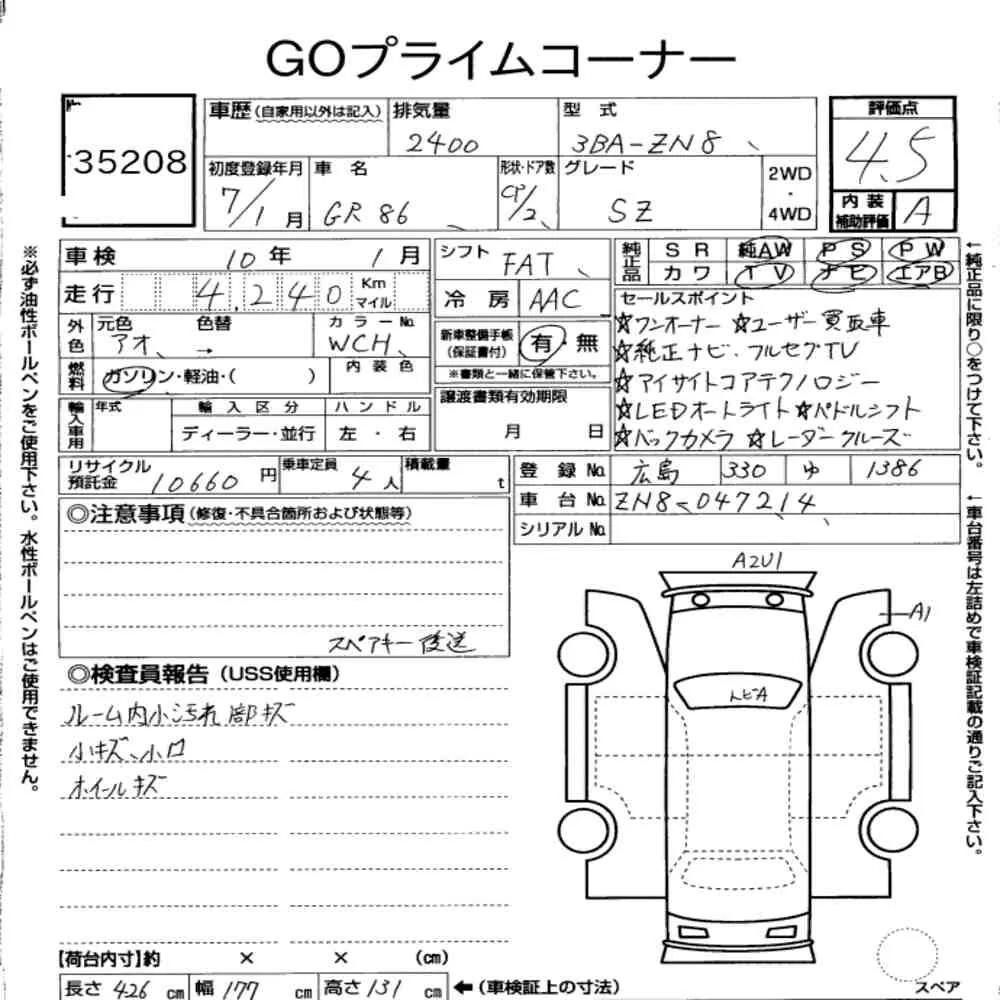 GOプライムコーナー
35208
車歴(自家用以外は記入)
排気量
2400
型 式
3BA-ZN8
評価点
4.5
内 装
補助評価
A
初度登録年月
7/1月
車 名
GR 86
形状・ドア数
CP/2
グレード
SZ
2WD
・
4WD
車検 10年 1月
走行 4,240 Km マイル
シフト
FAT
冷 房 AAC
純正品
SR 純AW PS PW
カワ TV ナビ エアB
外色
元色
アオ
色替
→
カラーNo.
WCH
燃料
ガソリン・軽油・( )
内 装 色
新車整備手帳
(保証書付)
有・無
※書類と一緒に保管下さい。
セールスポイント
☆ワンオーナー ☆ユーザー買取車
☆純正ナビ・フルセグTV
☆アイサイトコアテクノロジー
☆LEDオートライト☆パドルシフト
☆バックカメラ ☆レーダークルーズ
輸入車用
年式
輸 入 区 分
ディーラー・並行
ハ ン ド ル
左 ・ 右
譲渡書類有効期限
月 日
リサイクル
預託金
10660 円
乗車定員
4人
積載量
t
登 録 No. 広島 330 ゆ 1386
車 台 No. ZN8-047214
シリアル No.
◎注意事項(修復・不具合箇所および状態等)
スペアキー後送
◎検査員報告(USS使用欄)
ルーム内小汚れ部キズ
小キズ、小凹
ホイールキズ
A2U1
A1
トビA
【荷台内寸】約 × × (cm)
長さ 426 cm 幅 177 cm 高さ 131 cm ←(車検証上の寸法)
スペア
※必ず油性ボールペンをご使用下さい。水性ボールペンはご使用できません。
←純正品に限り○をつけて下さい。
←車台番号は左詰めで車検証記載の通りご記入下さい。